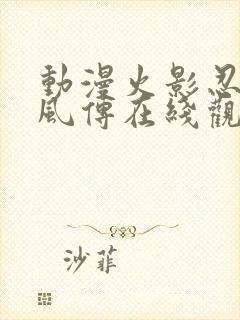 動漫火影忍
風傳在綫觀
沙菲